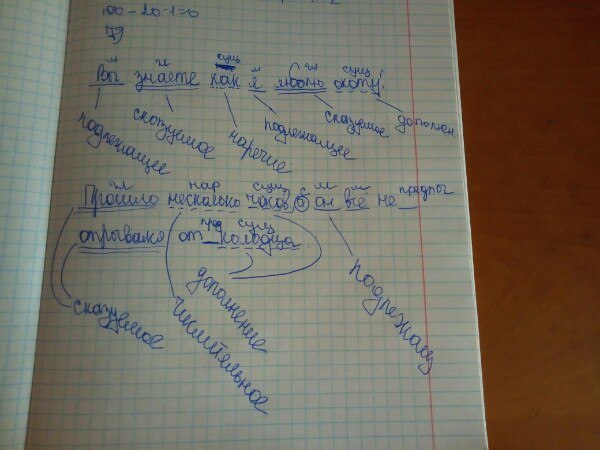 100-20-1=0
м гл сущ м гл сущ
Вы знаете как я люблю охоту!
подлежащее сказуемое наречие подлежащее сказуемое дополнен
гл нар сущ с м м предлог
Прошло несколько часов, а он все не
пред сущ
отрывался от колодца.
сказуемое дополнение числительное подлежащ